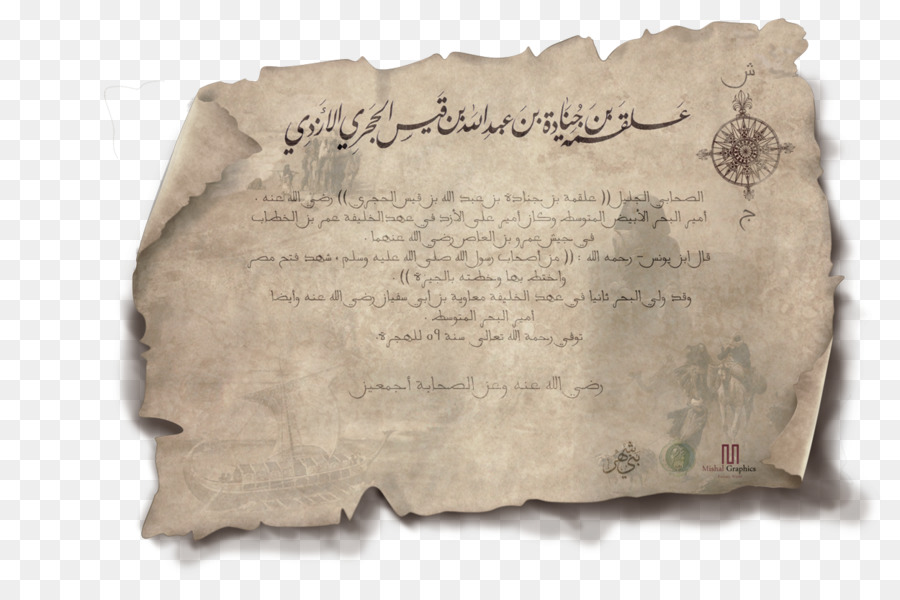 عَلقمَة بن جُنَادة بن عَبد الله بن قَيس الحَجَري الأزدي
ش
ج
الصحابي الجليل (( علقمة بن جنادة بن عبد الله بن قيس الحجري )) رضي الله عنه .
امير البحر الأبيض المتوسط وكان امير على الأزد في عهد الخليفة عمر بن الخطاب
في جيش عمرو بن العاص رضي الله عنهما .
قال ابن يونس- رحمه الله : (( من أصحاب رسول الله صلى الله عليه وسلم ، شهد فتح مصر
واختط بها وخطته بالجيزة )) .
وقد ولي البحر ثانيا في عهد الخليفة معاوية بن أبي سفيان رضي الله عنه وايضا
امير البحر المتوسط .
توفي رحمة الله تعالى سنة ٥٩ للهجرة.
رضي الله عنه وعن الصحابة اجمعين
بني شهر
Mishal Graphics